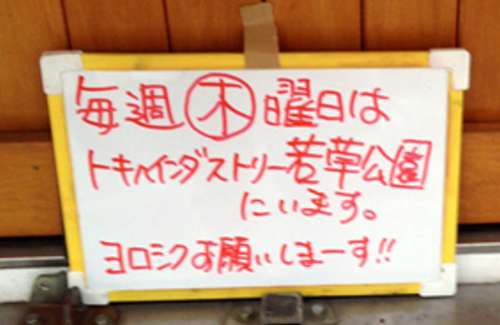 毎週木曜日は
トキハインダストリー若草公園
にいます。
ヨロシクお願いしまーす!!